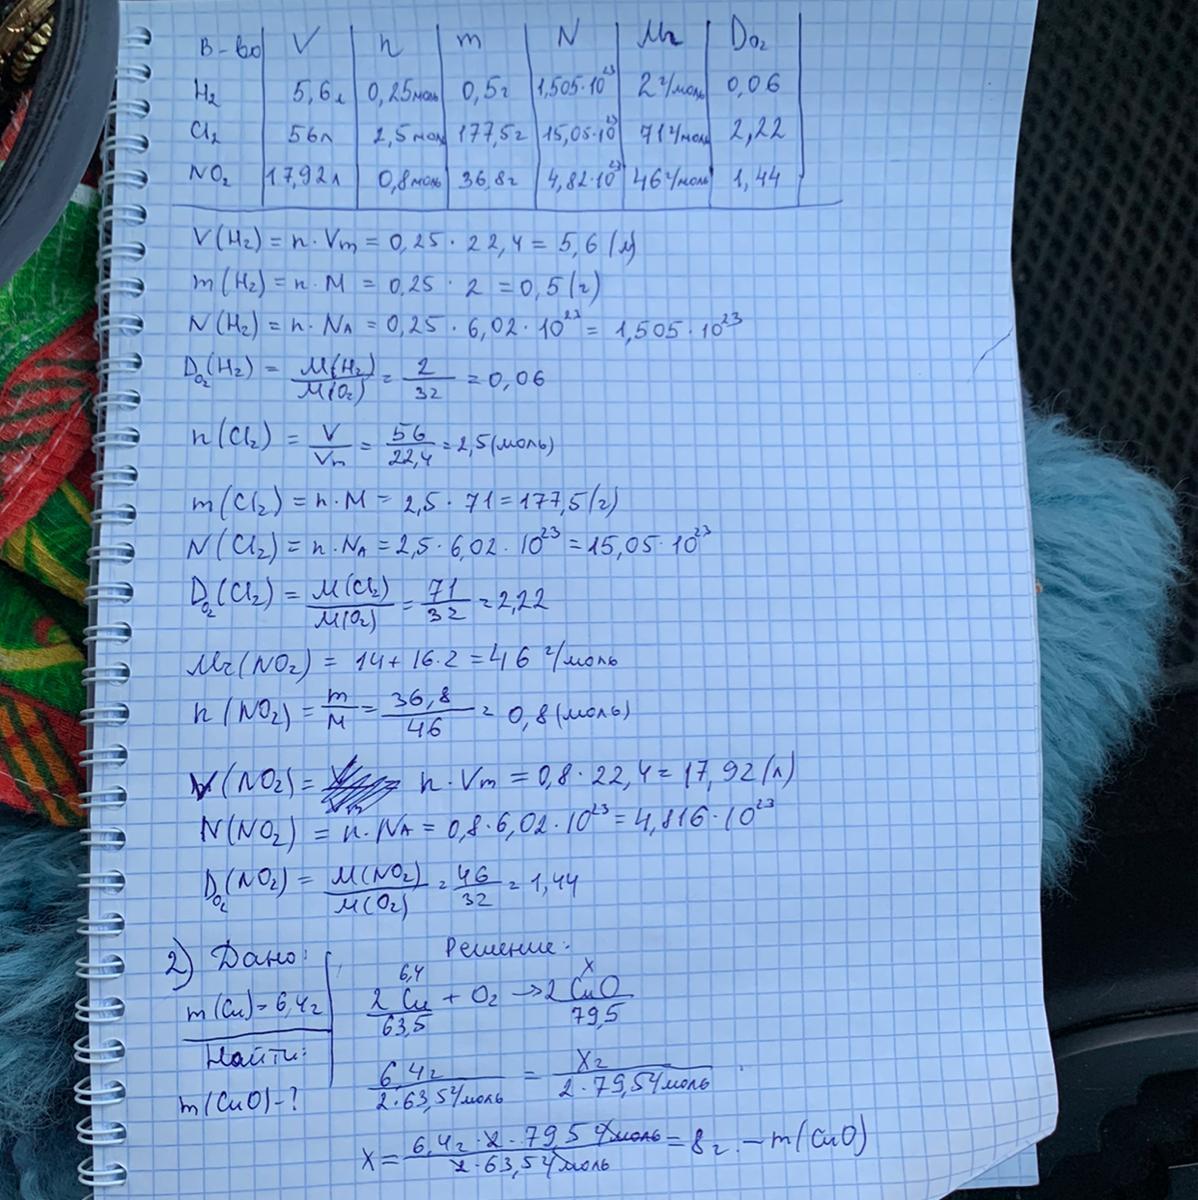 В-во V n m N Mr Do2
H2 5,6л 0,25моль 0,5г 1,505·10²³ 2г/моль 0,06
Cl2 56л 2,5моль 177,5г 15,05·10²³ 71г/моль 2,22
NO2 17,92л 0,8моль 36,8г 4,82·10²³ 46г/моль 1,44
V(H2) = n·Vm = 0,25·22,4 = 5,6(л)
m(H2) = n·M = 0,25·2 = 0,5(г)
N(H2) = n·NA = 0,25·6,02·10²³ = 1,505·10²³
Do2(H2) = M(H2)/M(O2) = 2/32 = 0,06
n(Cl2) = V/Vm = 56/22,4 = 2,5(моль)
m(Cl2) = n·M = 2,5·71 = 177,5(г)
N(Cl2) = n·NA = 2,5·6,02·10²³ = 15,05·10²³
Do2(Cl2) = M(Cl2)/M(O2) = 71/32 = 2,22
Mr(NO2) = 14+16·2 = 46 г/моль
n(NO2) = m/M = 36,8/46 = 0,8(моль)
V(NO2) = n·Vm = 0,8·22,4 = 17,92(л)
N(NO2) = n·NA = 0,8·6,02·10²³ = 4,816·10²³
Do2(NO2) = M(NO2)/M(O2) = 46/32 = 1,44
2) Дано:
m(Cu) = 6,4г
Найти:
m(CuO) - ?
Решение:
6,4 x
2Cu + O2 → 2CuO
63,5 79,5
6,4г/2·63,5г/моль = xг/2·79,5г/моль
x = 6,4г·2·79,5г/моль/2·63,5г/моль = 8г. – m(CuO)